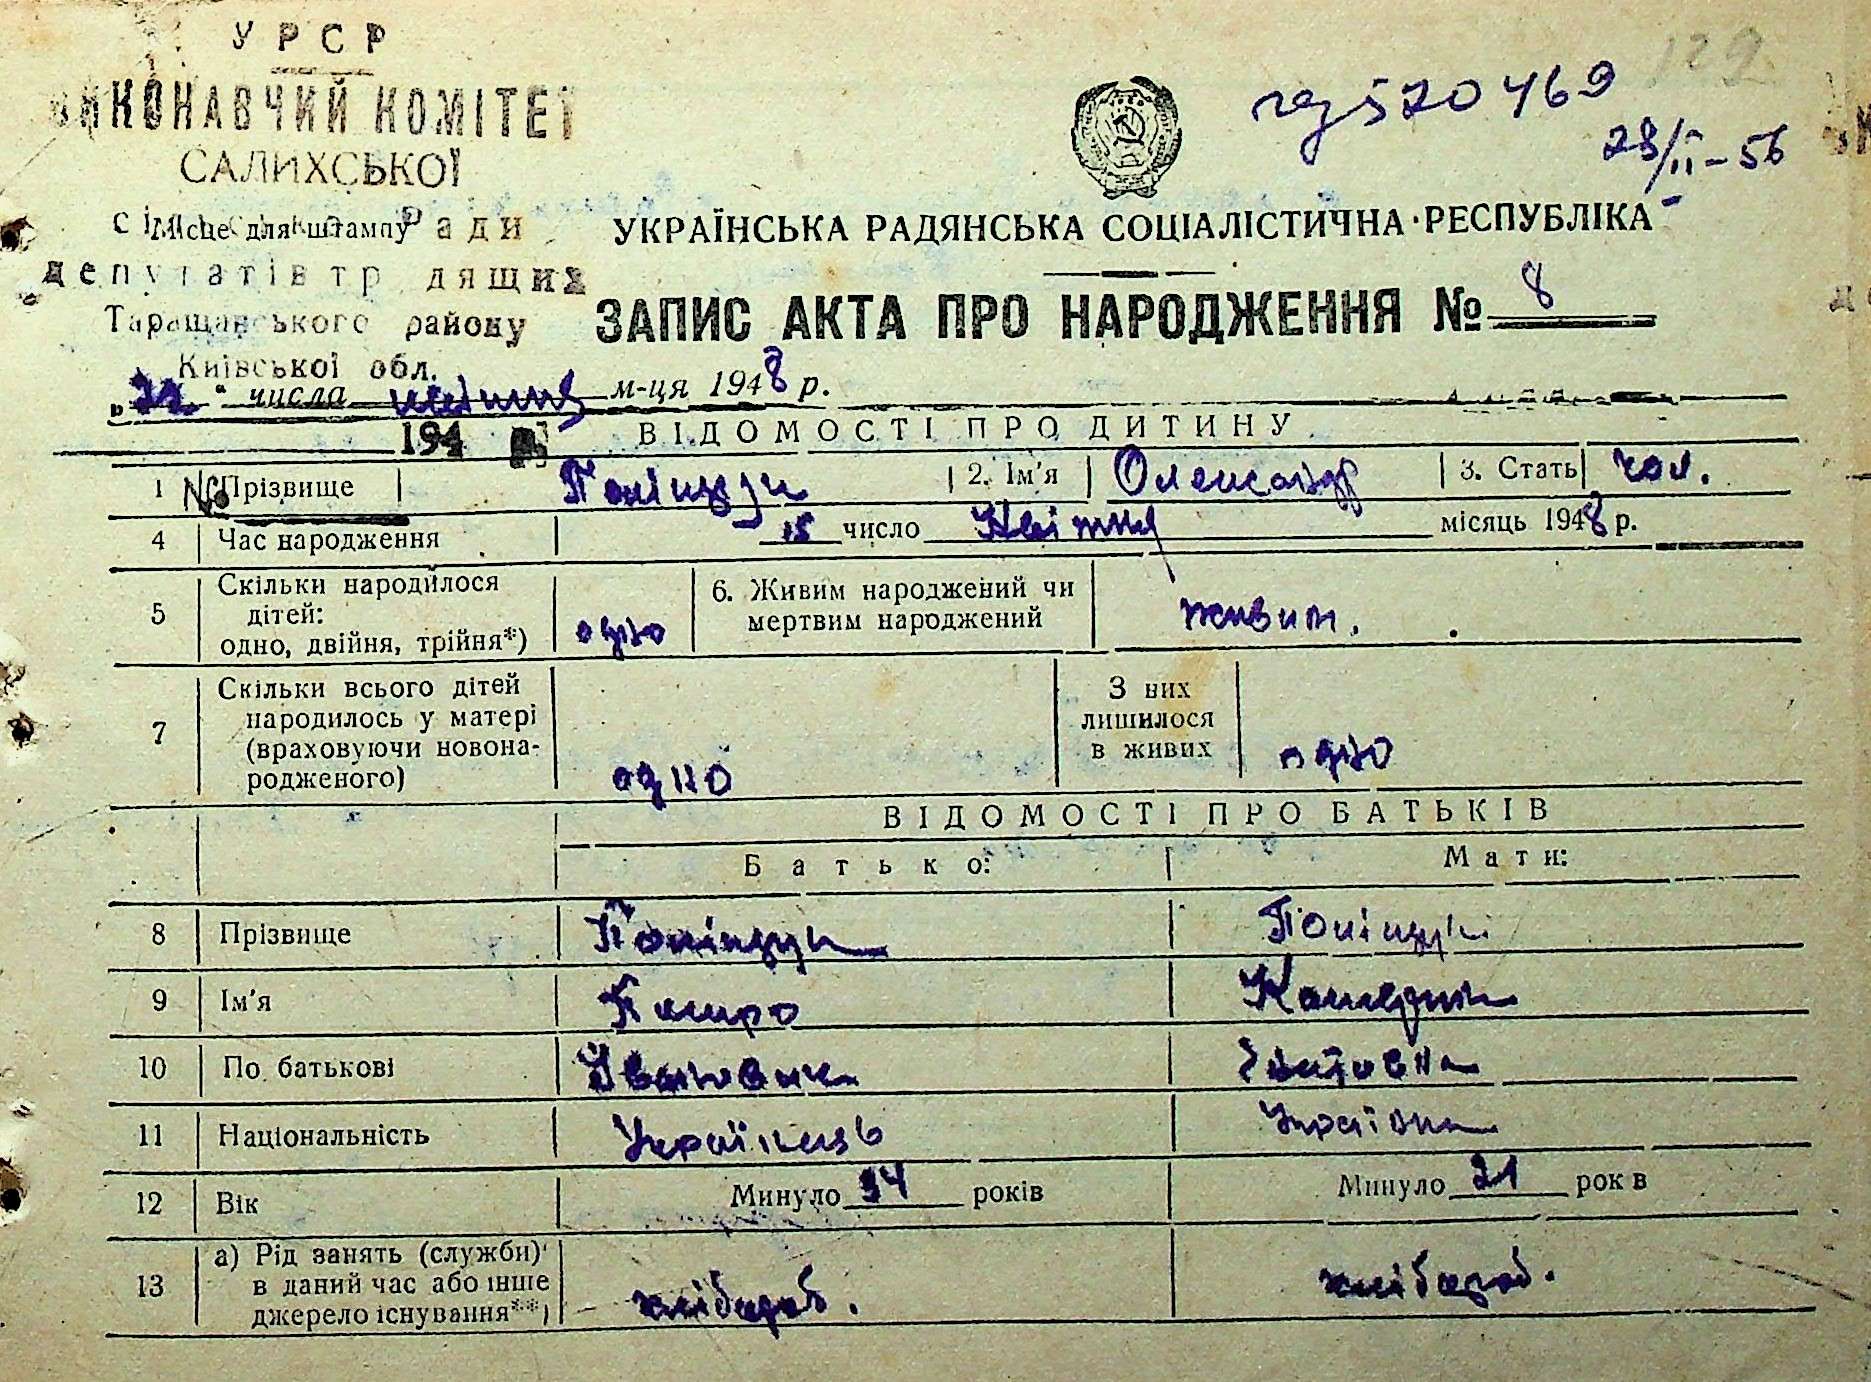 УРСР
ВИКОНАВЧИЙ КОМІТЕТ
САЛИХСЬКОЇ
Місце для штампу Ради
депутатів тр дящих
Таращанського району
Київської обл.
129
520469
28/II-56
УКРАЇНСЬКА РАДЯНСЬКА СОЦІАЛІСТИЧНА РЕСПУБЛІКА
ЗАПИС АКТА ПРО НАРОДЖЕННЯ № 8
„22“ числа квітня м-ця 1948 р.
194
ВІДОМОСТІ ПРО ДИТИНУ
1 Прізвище Поліщук 2. Ім'я Олександр 3. Стать чол.
4 Час народження 15 число Квітня місяць 1948 р.
5 Скільки народилося дітей: одно, двійня, трійня*) одно 6. Живим народжений чи мертвим народжений живим.
7 Скільки всього дітей народилось у матері (враховуючи новонародженого) одно З них лишилося в живих одно
ВІДОМОСТІ ПРО БАТЬКІВ
Батько: Мати:
8 Прізвище Поліщук Поліщук
9 Ім'я Петро
10 По батькові Іванович
11 Національність Українець Українка
12 Вік Минуло 34 років Минуло 21 рок в
13 а) Рід занять (служби) в даний час або інше джерело існування**) хлібороб. хлібороб.